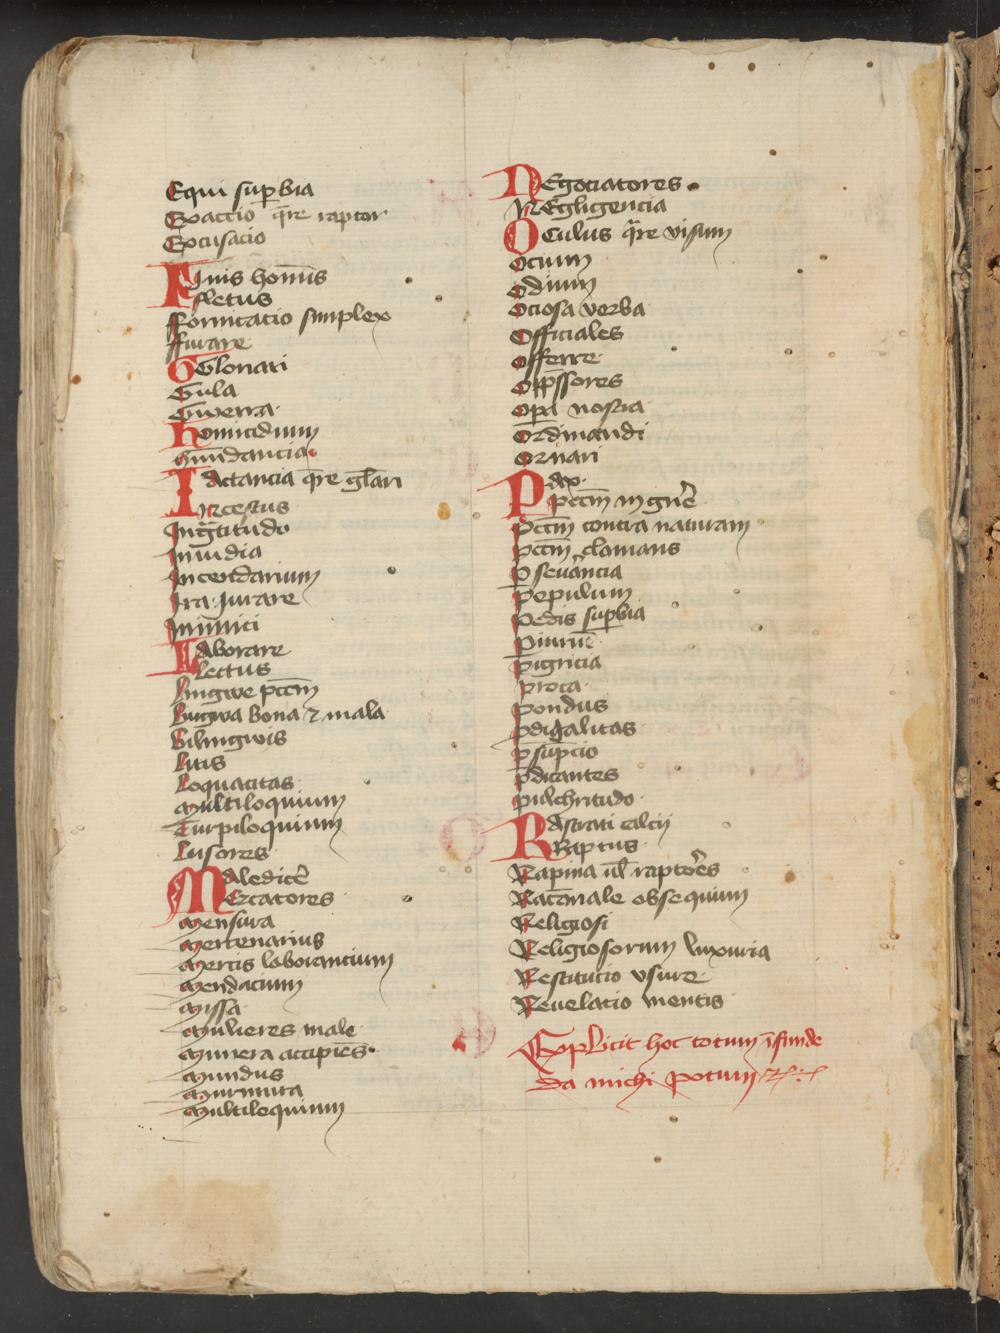 Equi suꝑbia
Exactio q̄re raptor
Excusacio
Finis hoīnis
fletus
fornicatio simplex
ffurare
Gloriari
Gula
Gwerra
Homicidium
Hūndancia
Iactancia q̄re gl̄ari
Incestus
Ingͣtitudo
Inuidia
Incendarium
Ira Iurare
Inimici
Laborare
Lectus
Lingwe pctm̄
Lingwa bona ⁊ mala
Bilingwis
Litis
Loquacitas
Multiloquium
Turpiloquium
Lusores
Maledic̄e
Mercatores
Mensura
Mercenarius
Mercis laborancium
Mendacium
Missa
Mulieres male
Munera accipiēs
Mundus
Murmura
Multiloquium
Negociatores
Negligencia
Oculus q̄re visum
Ocium
Odium
Ociosa verba
Officiales
Offerre
Opp̄ssores
Oꝑa nostra
Ordinandi
Ornari
Pax
Pctm̄ in gn̄e
Pctm̄ contra naturam
Pctm̄ clamans
ꝑseuͣancia
Pepulum
Pedis suꝑbia
Pigricia
Proca
Pondus
ꝓdigalitas
p̄sūpcio
p̄dicantes
pulchritudo
Raptus
Rapina ul̄ raptores
Rac̄onale obsequium
Religiosi
Religiosorum luxuria
Restitucio vsure
Reuelatio mentis
Explicit hoc totum īfunde
da michi potum